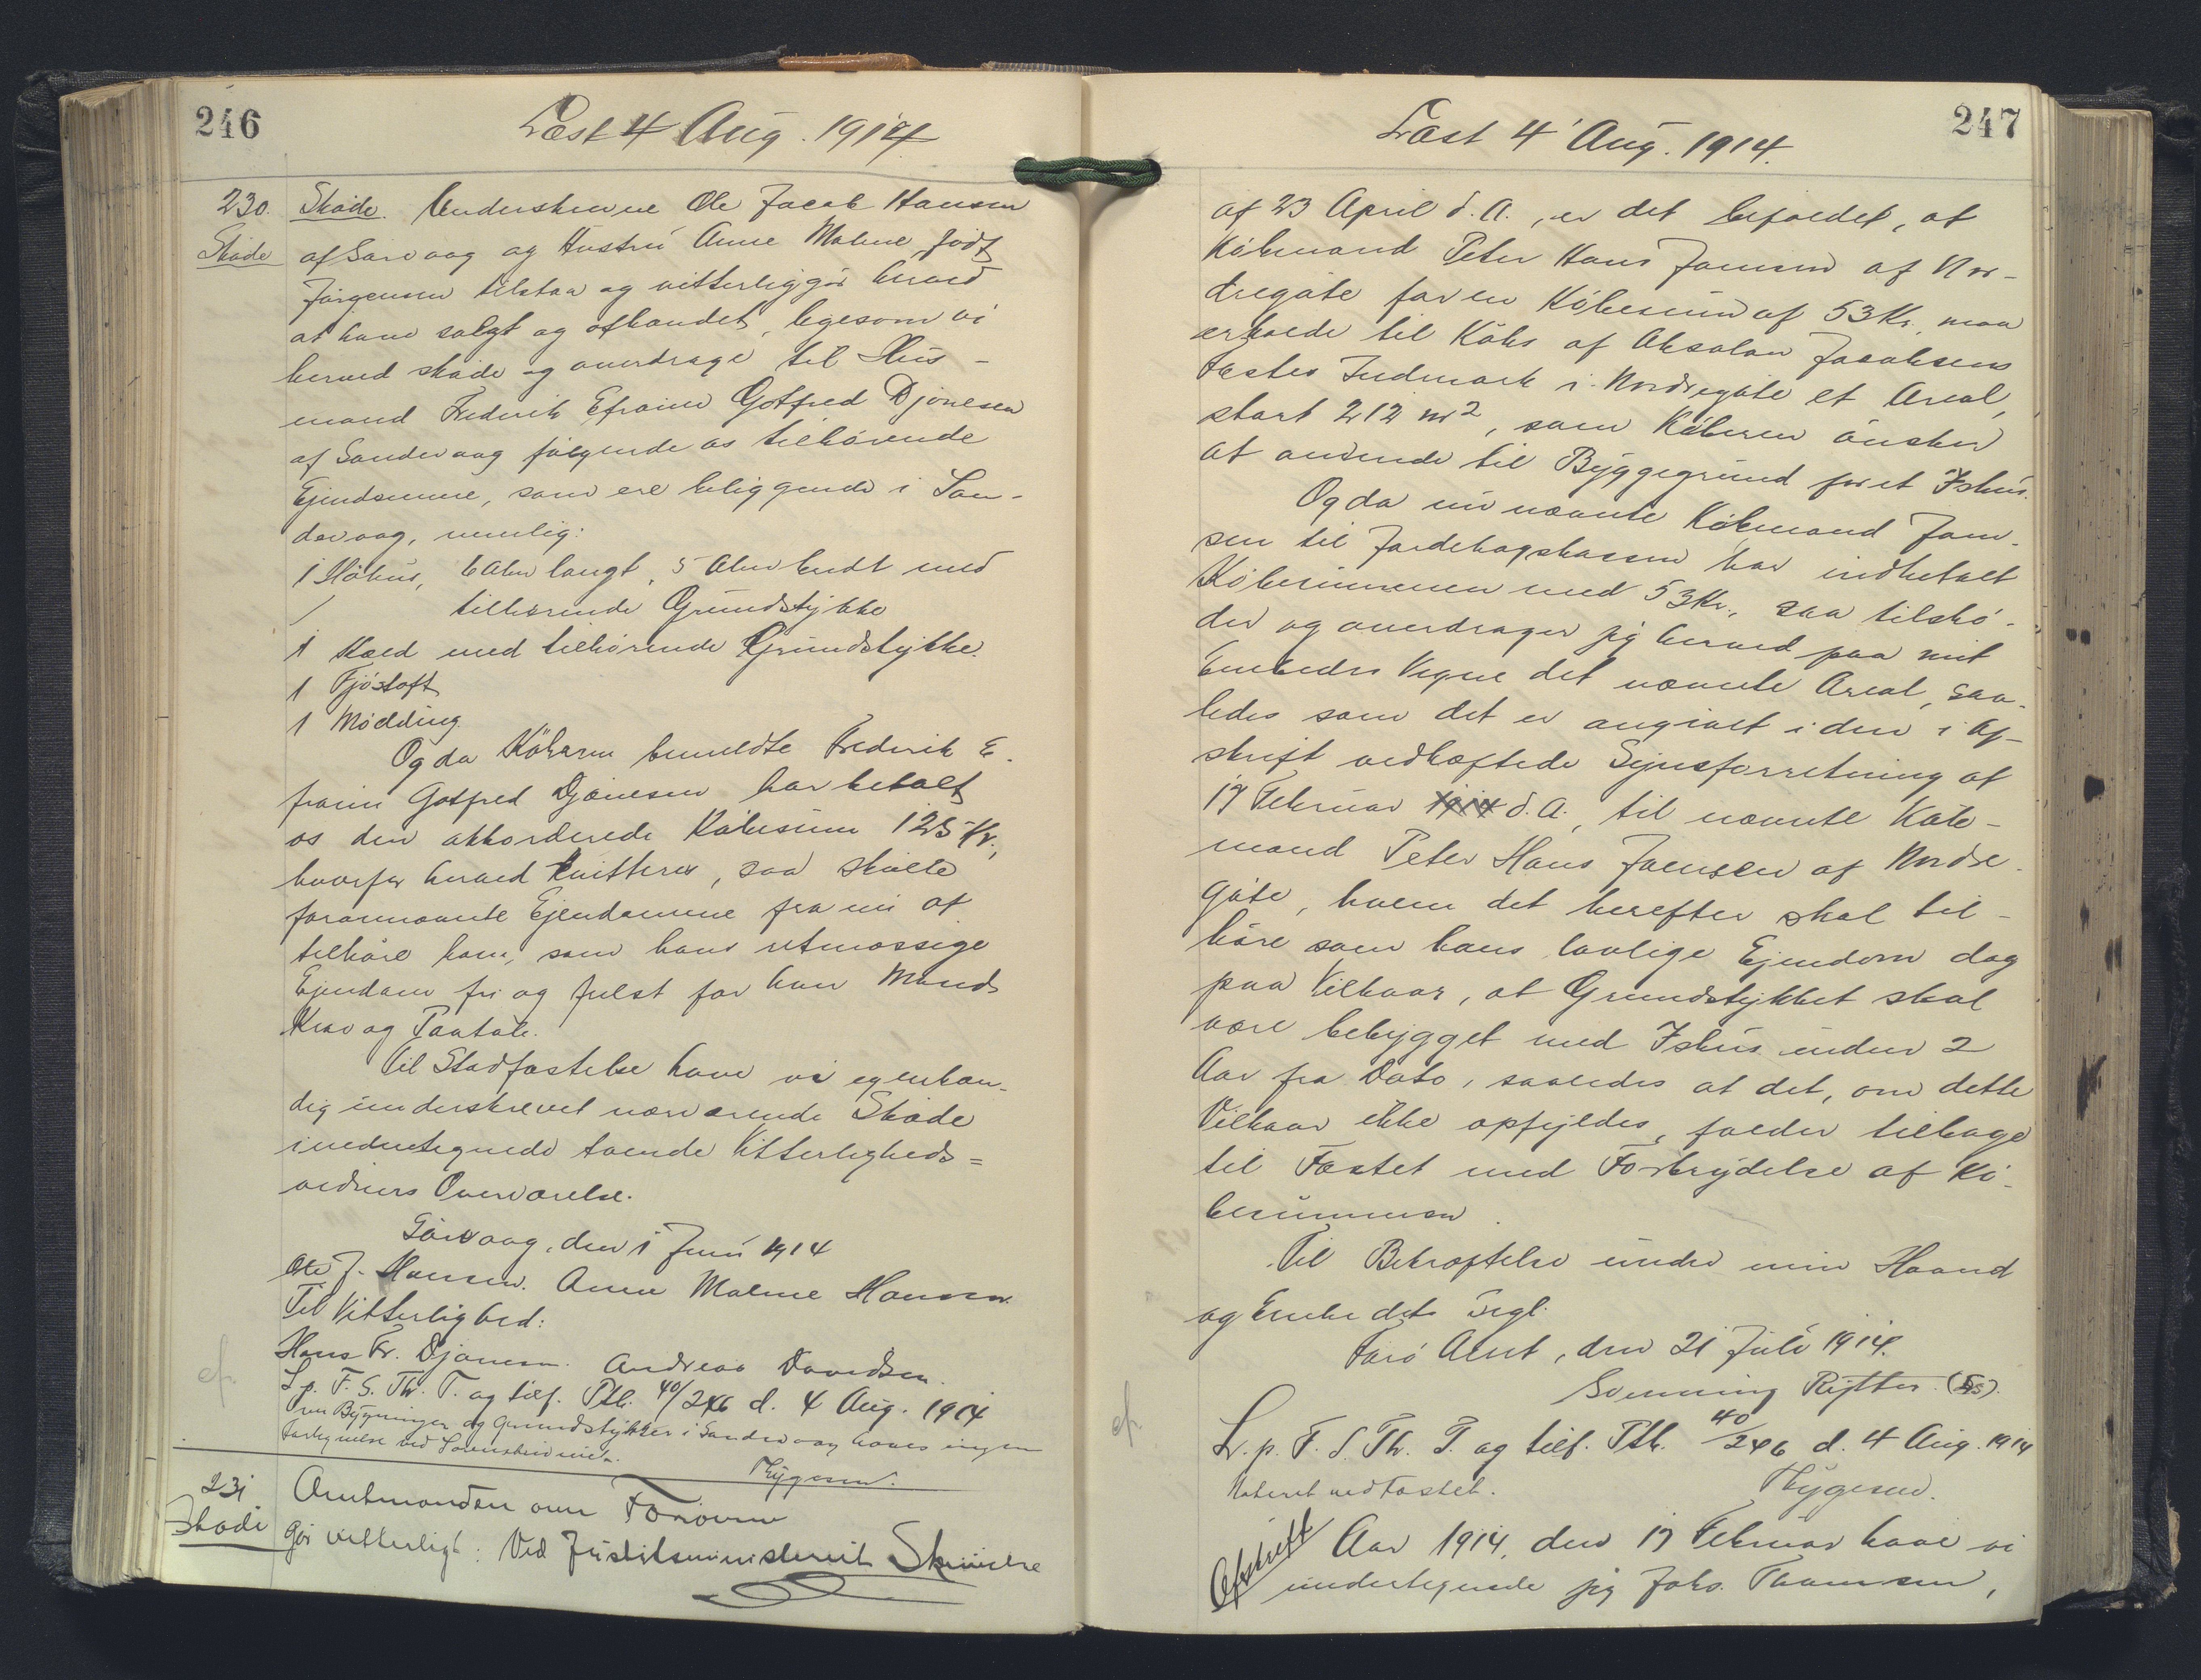 246
Læst 4 Aug. 1914
230. Skøde. Underskrevne Ole Jacob Hansen
Skøde af Sørvaag og Hustru Anne Malene født
Jørgensen tilstaa og vitterliggør herved
at have solgt og afhændet, ligesom vi
herved skøde og overdrage til Hus-
mand Frederik Efraim Gotfred Djonesen
af Sandevaag følgende os tilhørende
Ejendomme, som ere beliggende i San-
devaag, nemlig:
1 Höhus, 6 Alen langt, 5 Alen bredt med
tilhørende Grundstykke
1 Kold med tilhørende Grundstykke.
1 Fjøstoft
1 Mødding.
Og da Køberen bemeldte Frederik E-
fraim Gotfred Djonesen har betalt
os den akkorderede Købesum 125 Kr.,
hvorfor herved kvitteres, saa skulle
forannævnte Ejendomme fra nu af
tilhøre ham, som hans retmæssige
Ejendom fri og frelst for hver Mands
Krav og Paatale.
Til Stadfæstelse have vi egenhæn-
dig underskrevet nærværende Skøde
i nedentegnede tvende Vitterligheds=
vidners Overværelse.
Sørvaag, den 1 Juni 1914
Ole J. Hansen. Anne Malene Hansen.
Til Vitterlighed:
Hans Fr. Djonesen. Andreas Davidsen.
L. p. F. S. Th. T. og tilf. Ptb. 40/246 d. 4 Aug. 1914
Over Bygninger og Grundstykker i Sandevaag haves ingen
Fortegnelse ved Sorenskriveriet.
Thygesen.
231
Skøde
Amtmanden over Færøerne
Gør vitterligt: Ved Justitsministeriets Skrivelse
247
Læst 4 Aug. 1914.
af 23 April d. A., er det bifaldet, at
Købmand Peter Hans Joensen af Nor-
dregøte for en Købesum af 53 Kr. maa
erholde til Købs af Absalon Jacobsens
Fæstes Indmark i Nordregøte et Areal,
stort 212 m², som Køberen ønsker
at anvende til Byggegrund for et Ishus.
Og da nu nævnte Købmand Joen-
sen til Jordebogskassen har indbetalt
Købesummen med 53 Kr., saa tilskø-
der og overdrager jeg herved paa mit
Embedes Vegne det nævnte Areal, saa-
ledes som det er angivet i den i Af-
skrift vedhæftede Synsforretning af
17 Februar 1914 d. A., til nævnte Køb-
mand Peter Hans Joensen af Nordre-
gøte, hvem det herefter skal til-
høre som hans lovlige Ejendom dog
paa Vilkaar, at Grundstykket skal
være bebygget med Ishus inden 2
Aar fra Dato, saaledes at det, om dette
Vilkaar ikke opfyldes, falder tilbage
til Fæstet med Fortrydelse af Kø-
besummen.
Til Bekræftelse under min Haand
og Embedets Segl.
Færø Amt, den 21 Juli 1914.
Svenning Rytter. (LS).
L. p. F. S. Th. T. og tilf. Ptb. 40/246 d. 4 Aug. 1914
Noteret ved Fæstet.
Thygesen.
Afskrift
Aar 1914, den 17 Februar have vi
undertegnede jeg Johs. Thomsen,